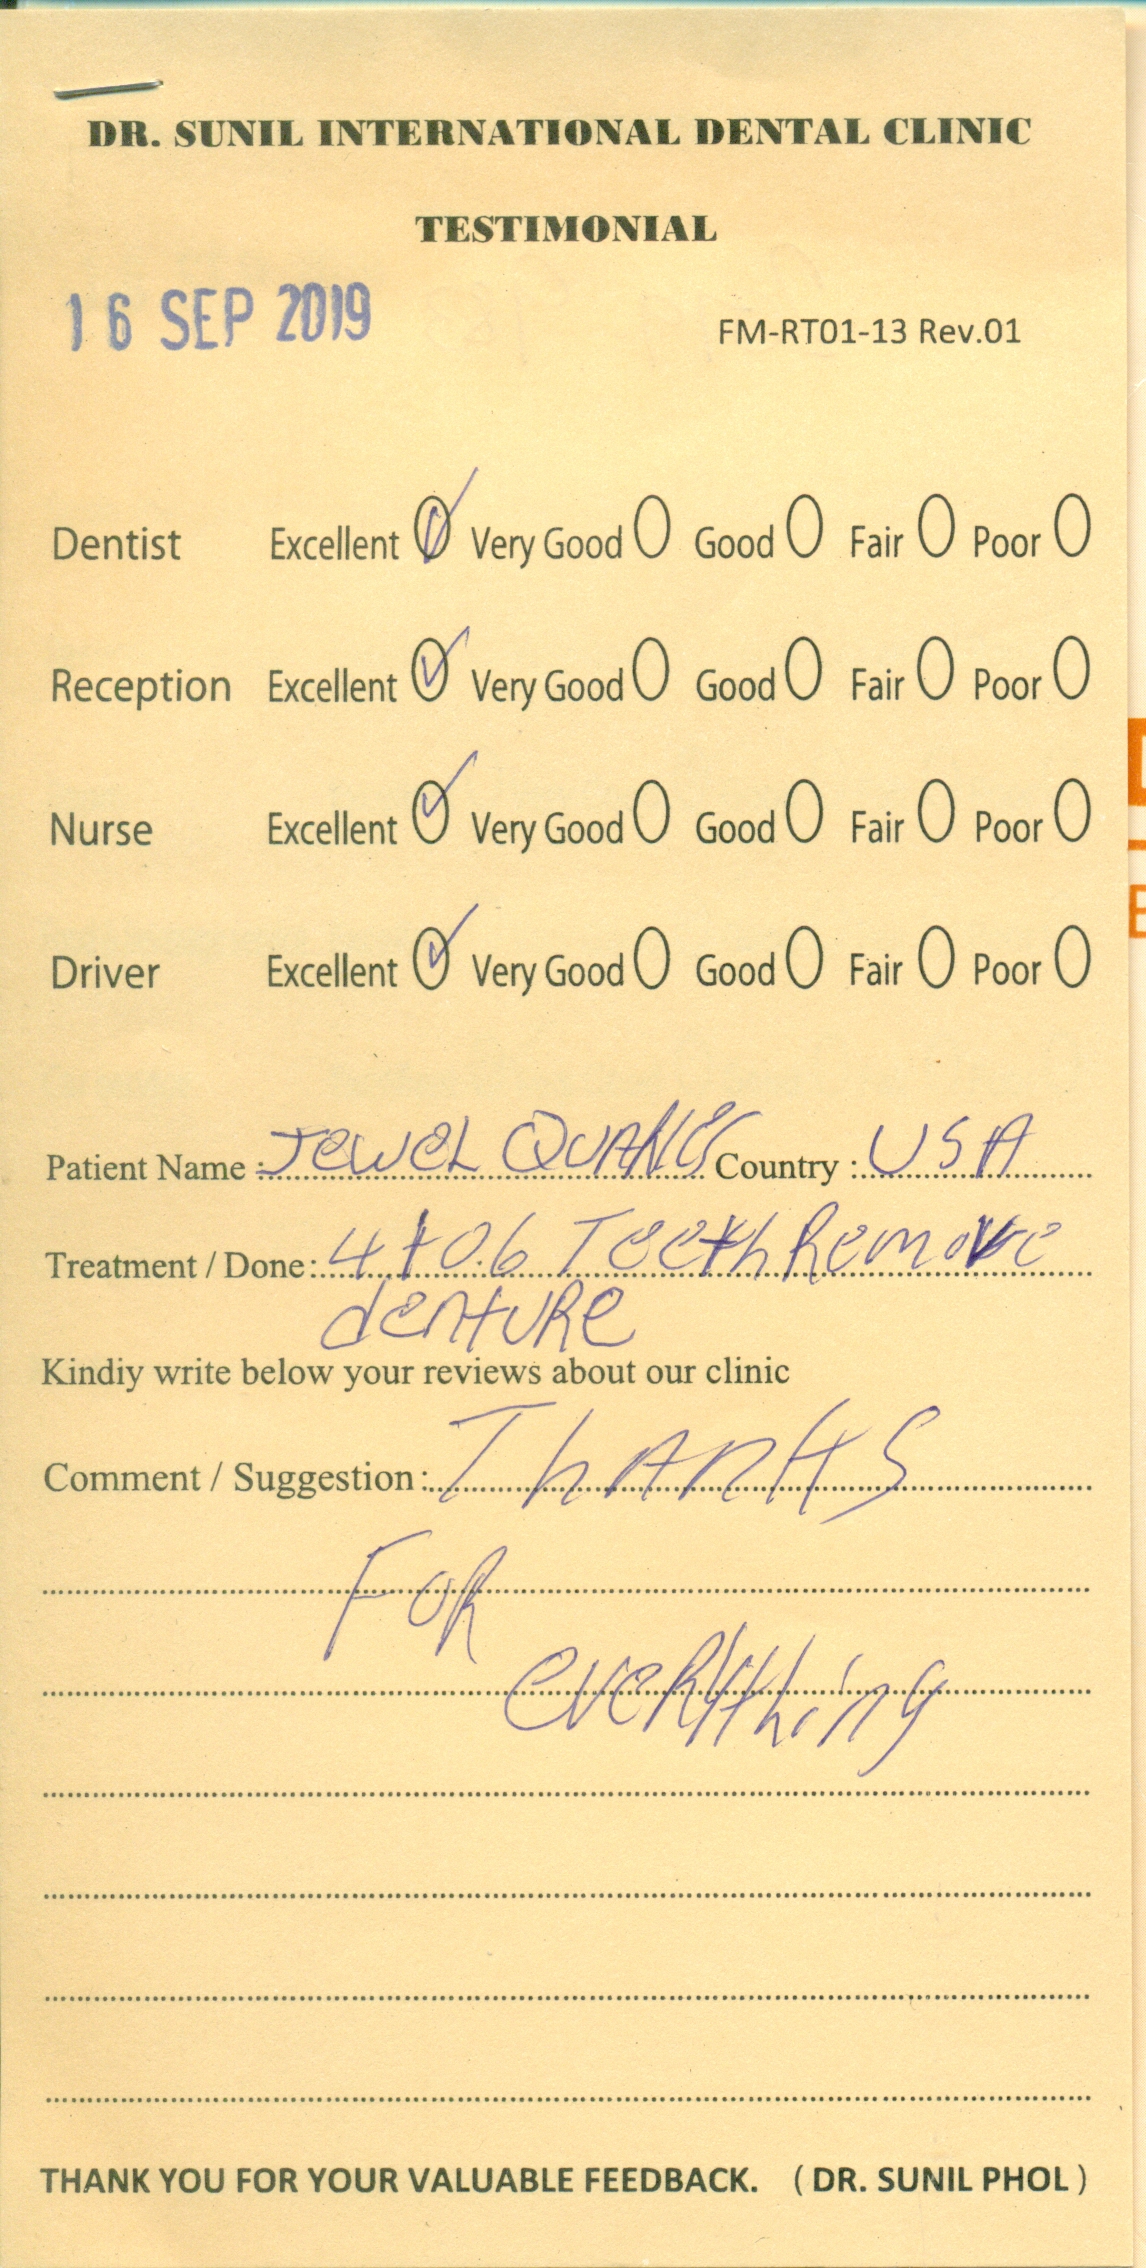 DR. SUNIL INTERNATIONAL DENTAL CLINIC
TESTIMONIAL
16 SEP 2019
FM-RT01-13 Rev.01
Dentist Excellent Very Good Good Fair Poor
Reception Excellent Very Good Good Fair Poor
Nurse Excellent Very Good Good Fair Poor
Driver Excellent Very Good Good Fair Poor
Patient Name : JeweL Country : USA
Treatment / Done: 4 to 6 Teeth Remove
denture
Kindiy write below your reviews about our clinic
Comment / Suggestion: Thanks
FOR
everything
THANK YOU FOR YOUR VALUABLE FEEDBACK. ( DR. SUNIL PHOL )